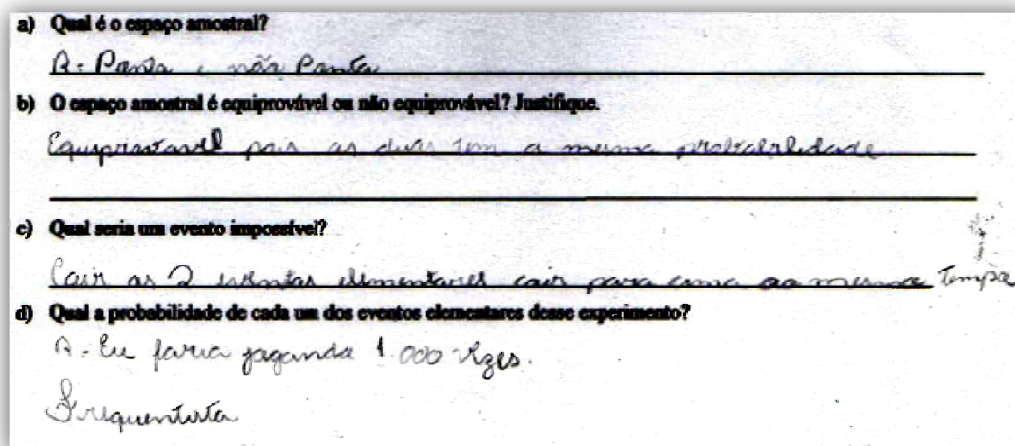 a) Qual é o espaço amostral?
R: Ponta e não Ponta
b) O espaço amostral é equiprovável ou não equiprovável? Justifique.
Equiprovavel pois as duas tem a mesma probabilidade
c) Qual seria um evento impossível?
Cair os 2 eventos elementares cair para cima ao mesmo tempo
d) Qual a probabilidade de cada um dos eventos elementares desse experimento?
R- Eu faria jogando 1.000 vezes.
Frequentista